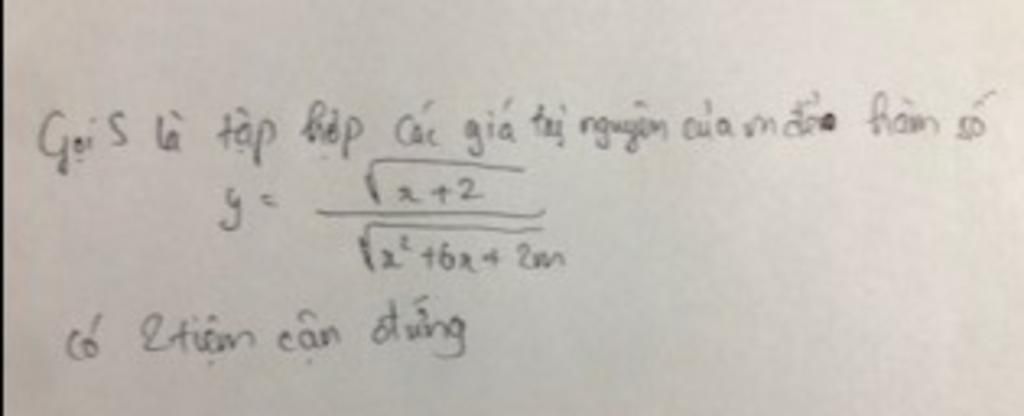 Gọi S là tập hợp các giá trị nguyên của m để hàm số
y = \frac{\sqrt{x+2}}{\sqrt{x^2+6x+2m}}
có 2 tiệm cận đứng